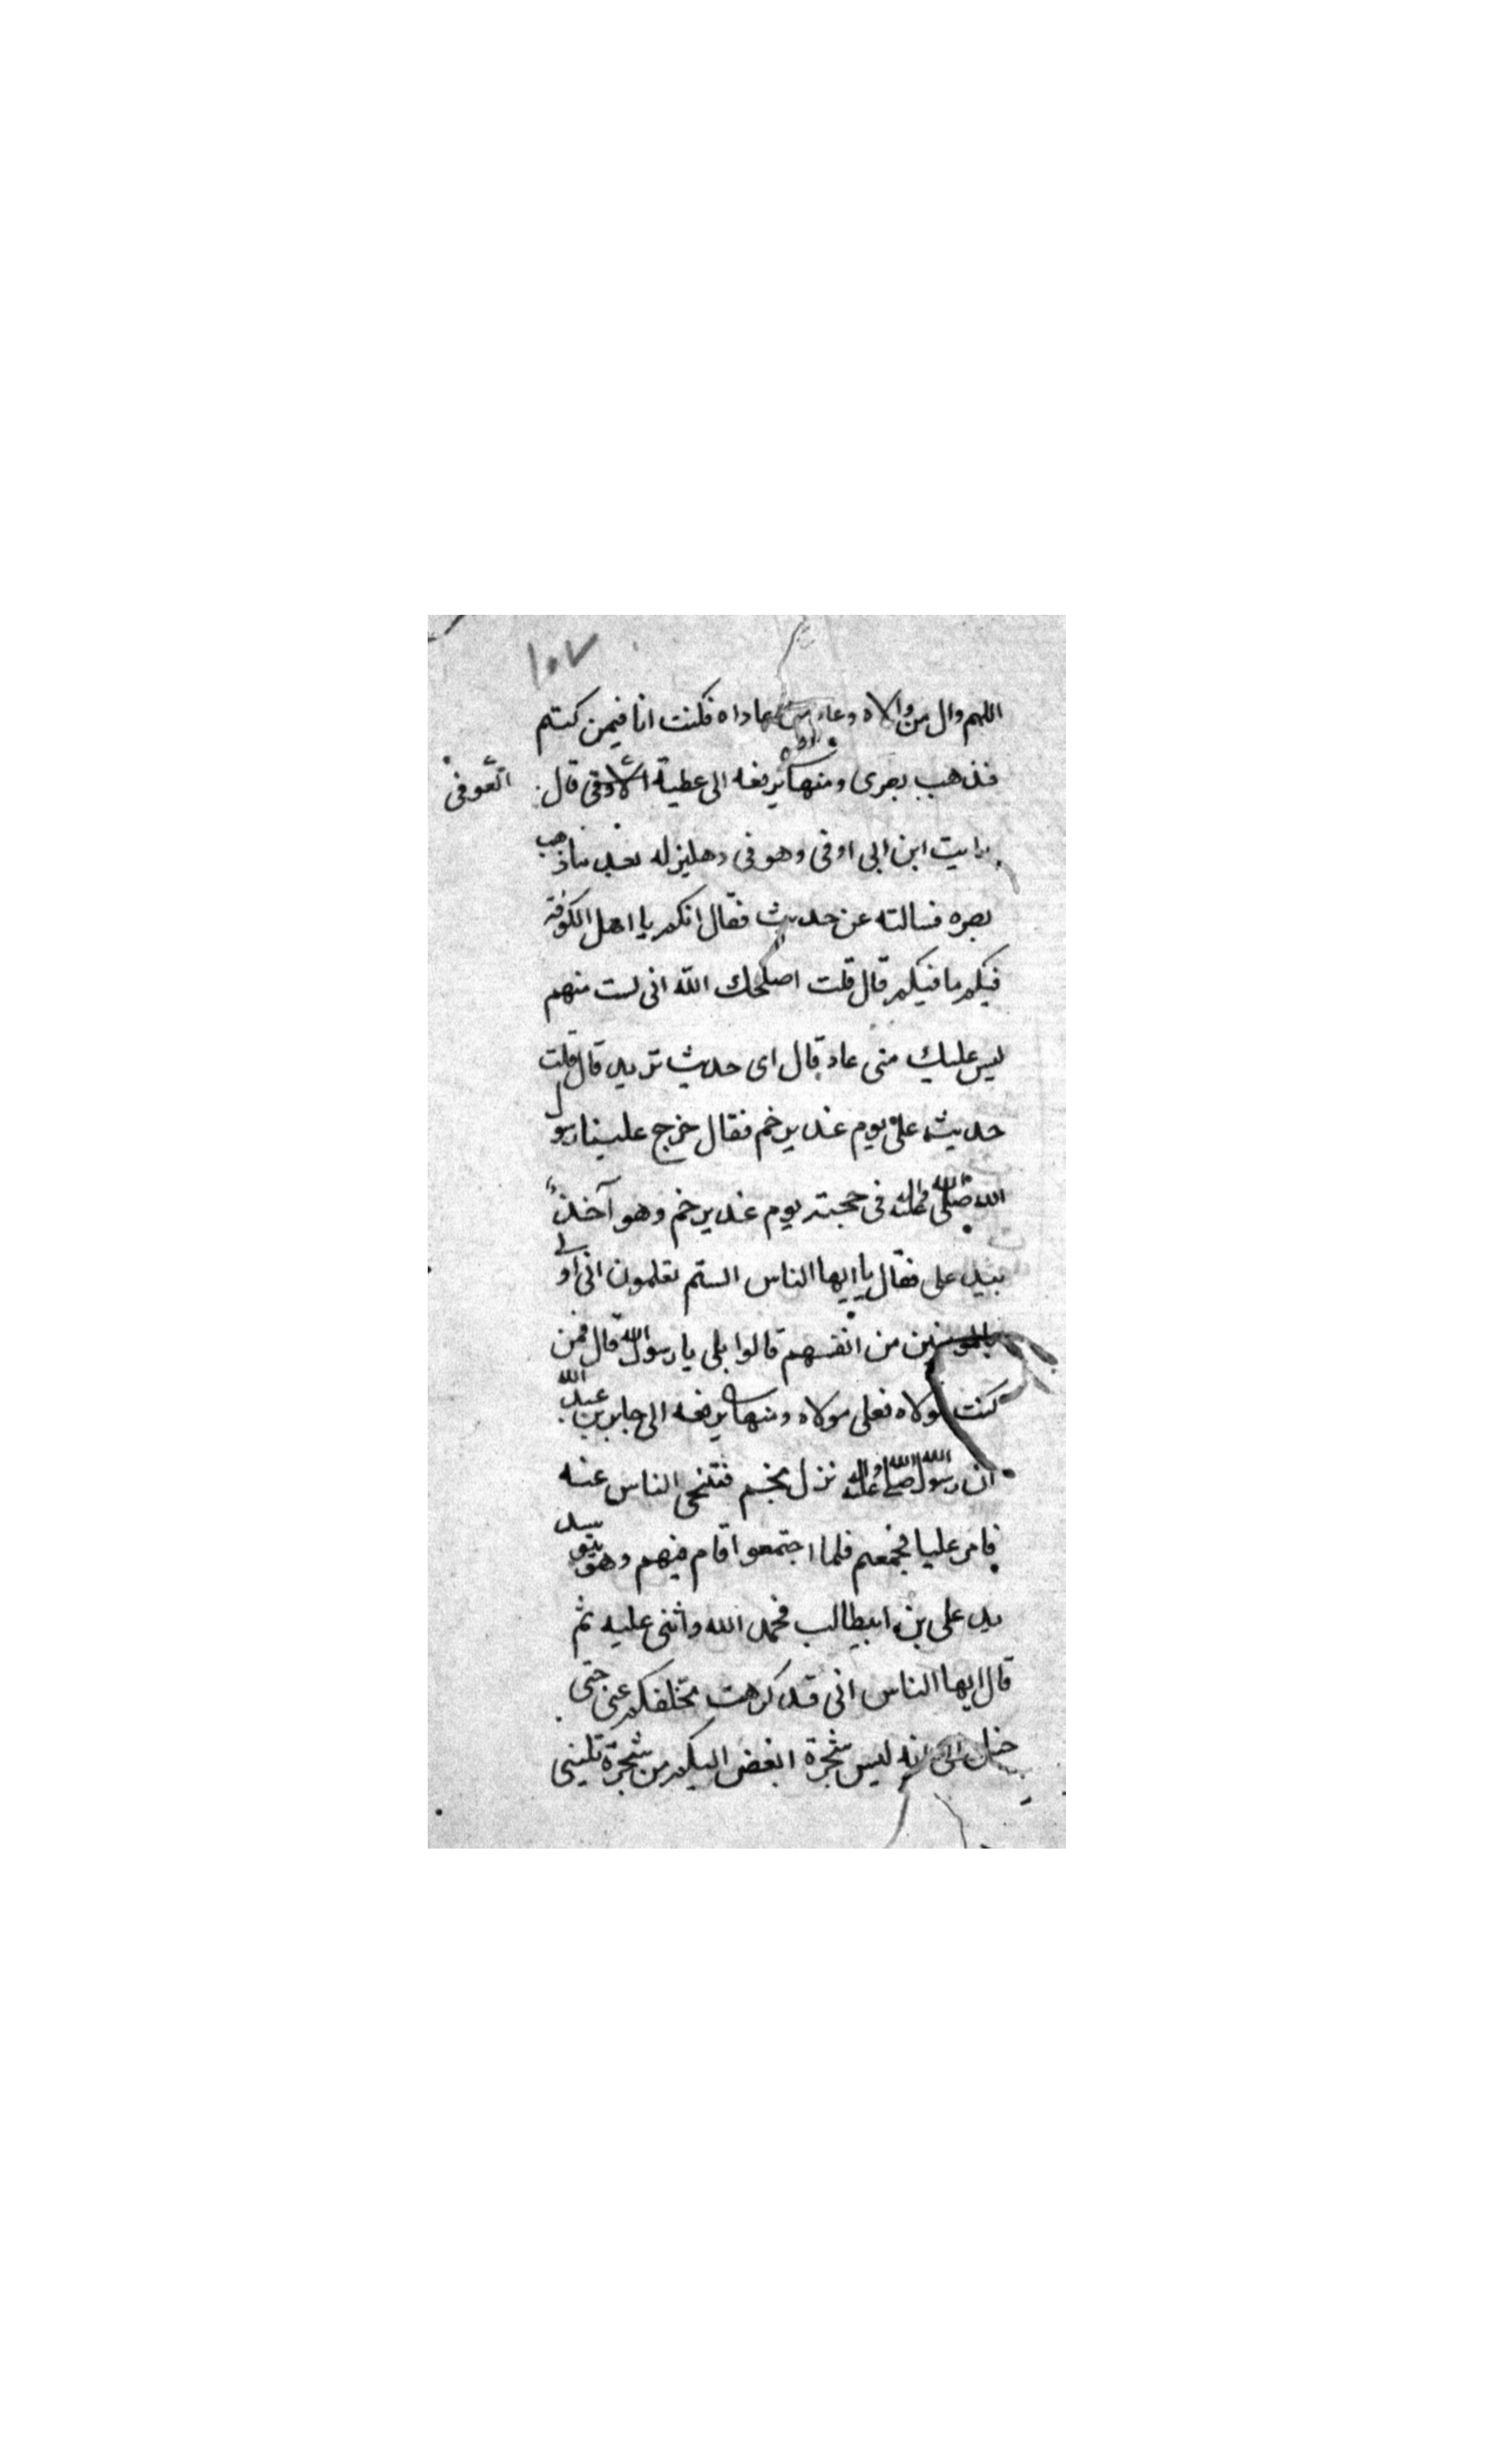 ١٠٧
اللهم وال من والاه وعاد من عاداه فكنت انا فيمن كتم
فذهب بصرى ومنها يرفعه الى عطية الاوفى قال
العوفى
رايت ابن ابى اوفى وهو فى دهليز له بعد ما ذهب
بصره فسالته عن حديث فقال انكم يا اهل الكوفة
فيكم ما فيكم قال قلت اصلحك الله انى لست منهم
ليس عليك منى عاد قال اى حديث تريد قال قلت
حديث على يوم غدير خم فقال خرج علينا رسول
الله صلى الله عليه واله فى حجته يوم غدير خم وهو آخذ
بيد على فقال يا ايها الناس الستم تعلمون انى اولى
بالمومنين من انفسهم قالوا بلى يا رسول الله قال فمن
كنت مولاه فعلى مولاه ومنها يرفعه الى جابر بن عبد الله
ان رسول الله صلى الله عليه واله نزل بخم فتنحى الناس عنه
فامر عليا فجمعهم فلما اجتمعوا قام فيهم وهو متوسد
يد على بن ابيطالب فحمد الله واثنى عليه ثم
قال ايها الناس انى قد كرهت تخلفكم عنى حتى
خيل الى انه ليس شجرة ابغض اليكم من شجرة تلينى